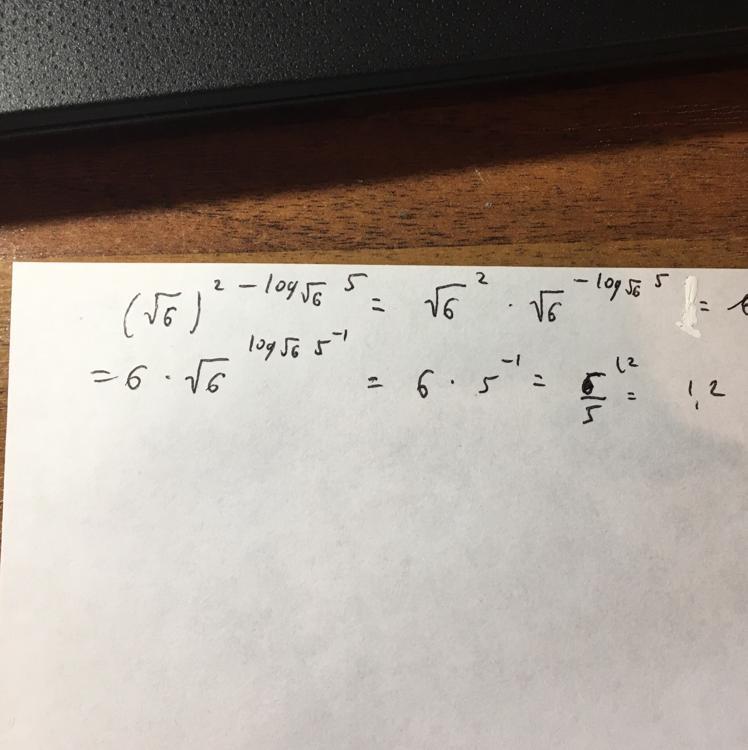 (√6)^{2 - log_{√6} 5} = √6^2 · √6^{-log_{√6} 5} =
= 6 · √6^{log_{√6} 5^{-1}} = 6 · 5^{-1} = 6/5 = 1,2 1,2